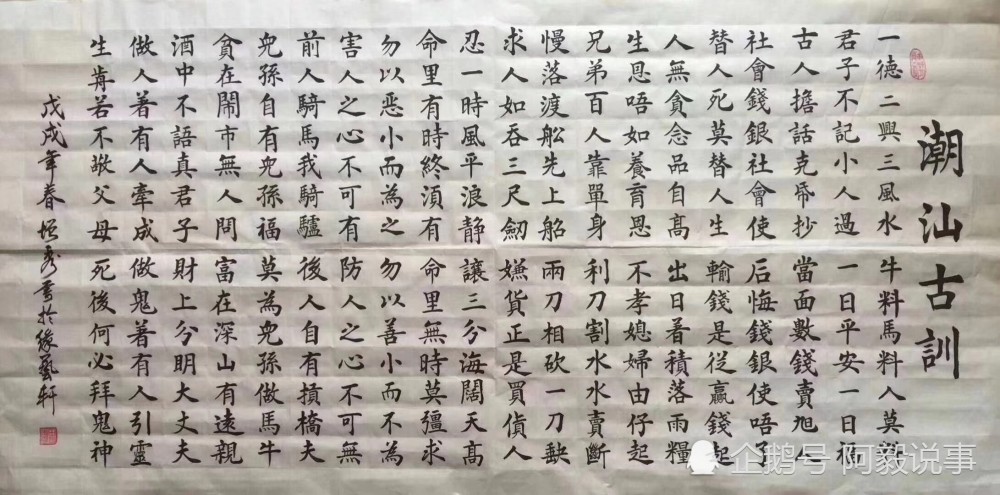 潮汕古訓
一德二興三風水 牛料馬料入莫
君子不記小人過 一日平安一日福
古人擔話克帋抄 當面數錢賣旭人
社會錢銀社會使 后悔錢銀使唔了
替人死莫替人生 輸錢是從贏錢起
人無貪念品自高 出日着積落雨糧
生恩唔如養育恩 不孝媳婦由仔起
兄弟百人靠單身 利刀割水水賣斷
慢落渡舩先上船 兩刀相砍一刀缺
求人如吞三尺劒 嫌貨正是買貨人
忍一時風平浪静 讓三分海闊天高
命里有時終須有 命里無時莫彊求
勿以惡小而為之 勿以善小而不為
害人之心不可有 防人之心不可無
前人騎馬我騎驢 後人自有摃橋夫
兒孫自有兒孫福 莫為兒孫做馬牛
貧在鬧市無人問 富在深山有遠親
酒中不語真君子 財上分明大丈夫
做人着有人牽成 做鬼着有人引靈
生肯若不敬父母 死後何必拜鬼神
戊戌年春 於 藝軒
企鹅号 阿毅说事